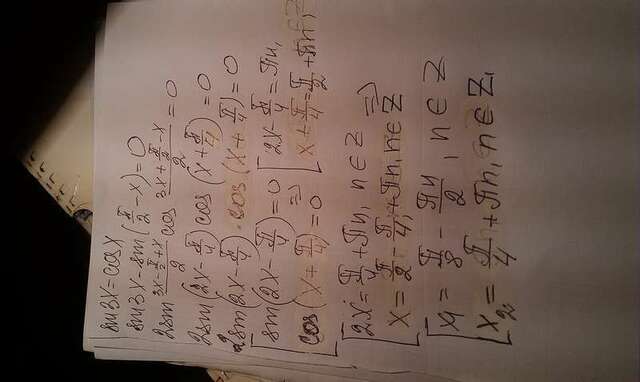 sin3x = cosx
sin3x - sin(π/2 - x) = 0
2sin (3x - π/2 + x)/2 cos (3x + π/2 - x)/2 = 0
2sin(2x - π/4) cos(x + π/4) = 0
2sin(2x - π/4) · cos(x + π/4) = 0
[ sin(2x - π/4) = 0 ⇒ [ 2x - π/4 = πn,
[ cos(x + π/4) = 0 [ x + π/4 = π/2 + πn, n∈Z
[ 2x = π/4 + πn, n∈Z ⇒
x = π/2 - π/4 + πn, n∈Z
[ x₁ = π/8 - πn/2, n∈Z
[ x₂ = π/4 + πn, n∈Z,